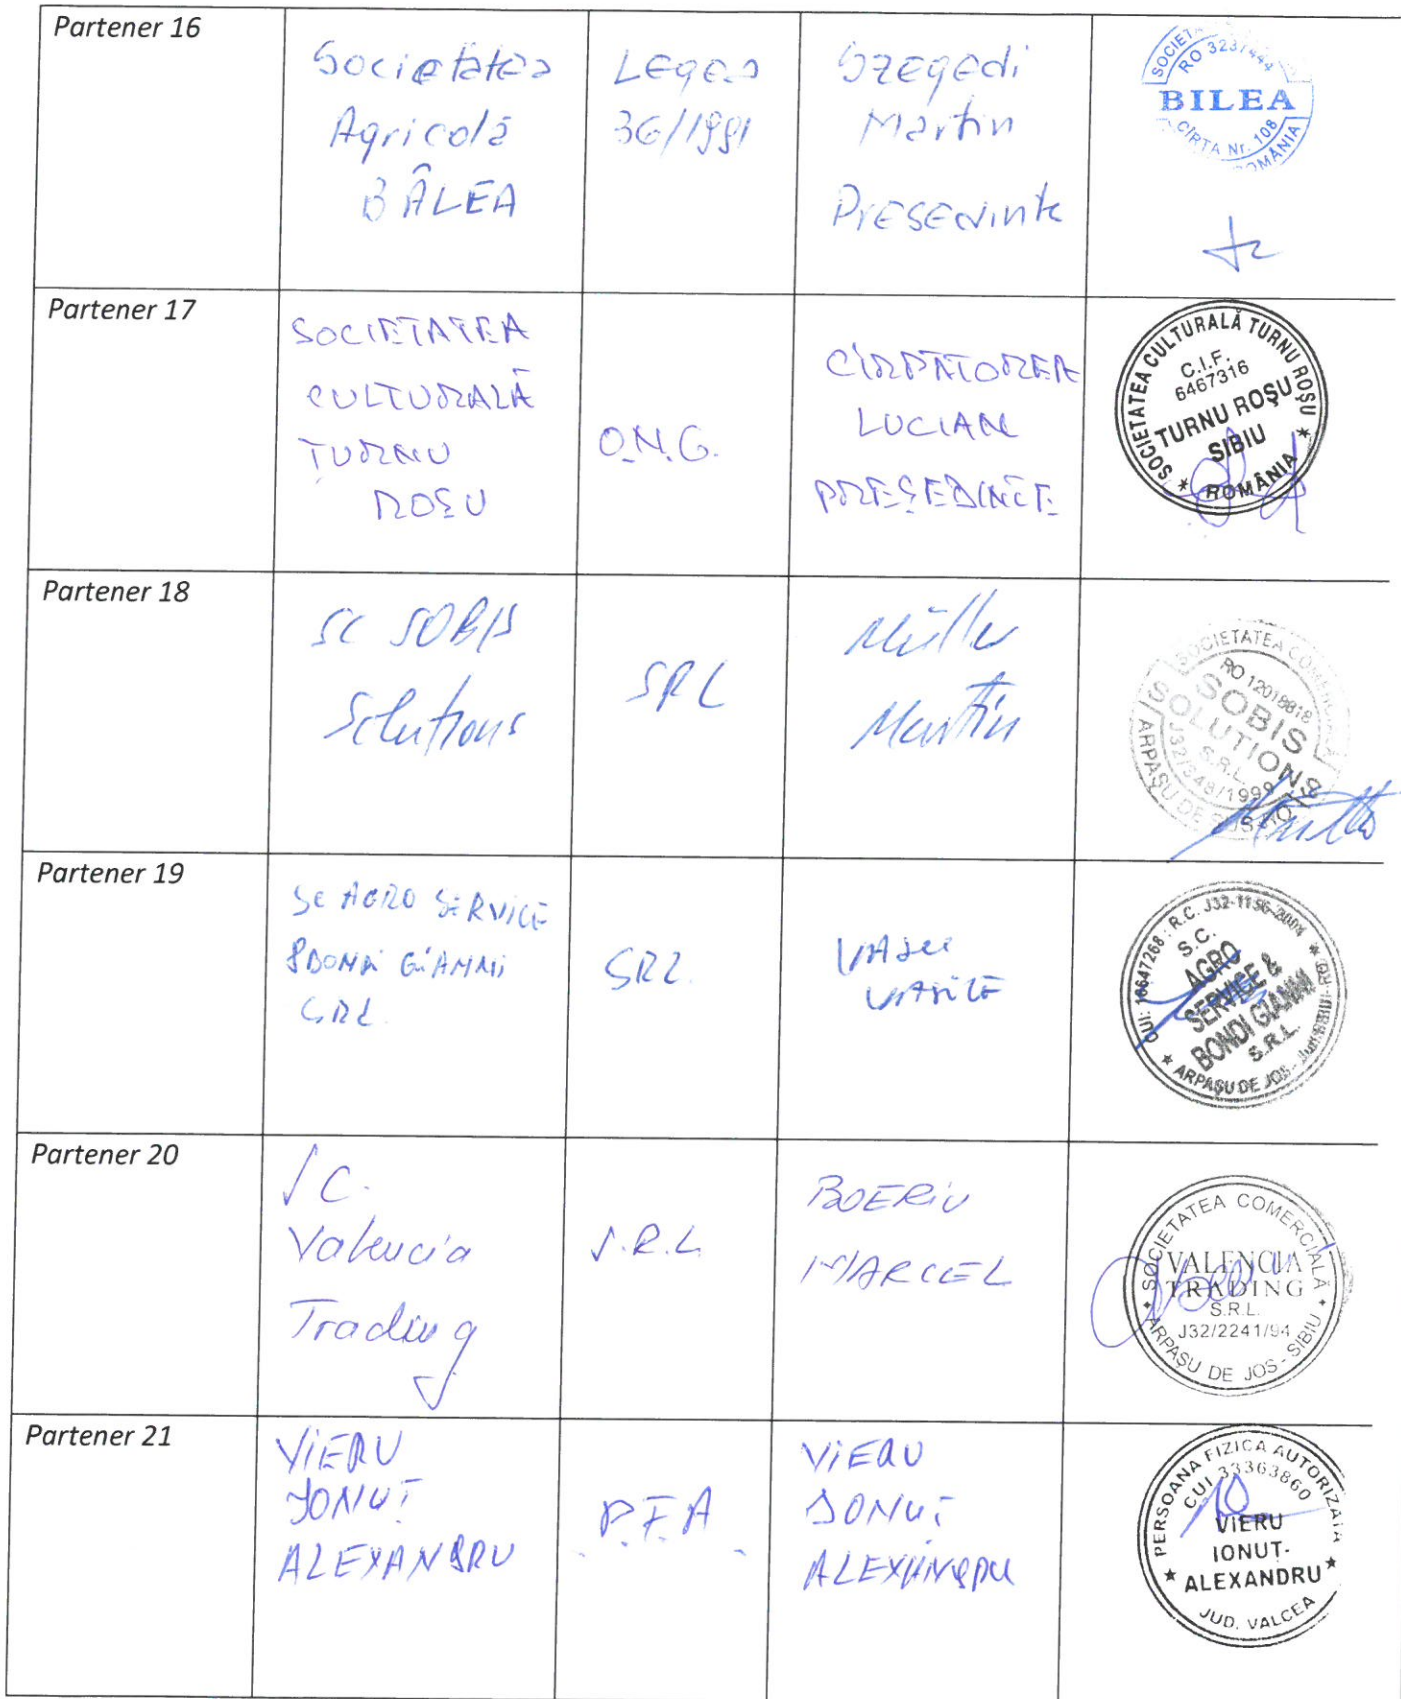 Partener 16
Societatea
Agricolă
BÂLEA
Legea
36/1991
Szegedi
Martin
Presedinte
RO 3237444
BILEA
CÎRȚA Nr. 108
ROMÂNIA
Partener 17
SOCIETATEA
CULTURALĂ
TURNU
ROȘU
O.N.G.
LUCIAN
PREȘEDINTE
SOCIETATEA CULTURALĂ TURNU ROȘU
C.I.F.
6467316
TURNU ROȘU
SIBIU
* ROMÂNIA *
Partener 18
SC SOBIS
Solutions
SRL
Müller
Martin
SOCIETATEA COMERCIALĂ
RO 12019818
SOBIS
SOLUTIONS
S.R.L.
J32/348/1999
ARPAȘU DE SUS
Partener 19
SC AGRO SERVICE
&BONDI GIANNI
SRL
SRL
VASILE
CUI: 16647268 · R.C. J32-1156-2004
S.C.
AGRO
SERVICE &
BONDI GIANNI
S.R.L.
* ARPAȘU DE JOS
Partener 20
SC.
Valencia
Trading
S.R.L
BOERIU
MARCEL
SOCIETATEA COMERCIALĂ
VALENCIA
TRADING
S.R.L.
J32/2241/94
ARPAȘU DE JOS - SIBIU
Partener 21
VIERU
IONUȚ
ALEXANDRU
P.F.A.
VIERU
IONUȚ
ALEXANDRU
PERSOANA FIZICA AUTORIZATA
CUI 33363860
VIERU
IONUT-
* ALEXANDRU *
JUD. VALCEA